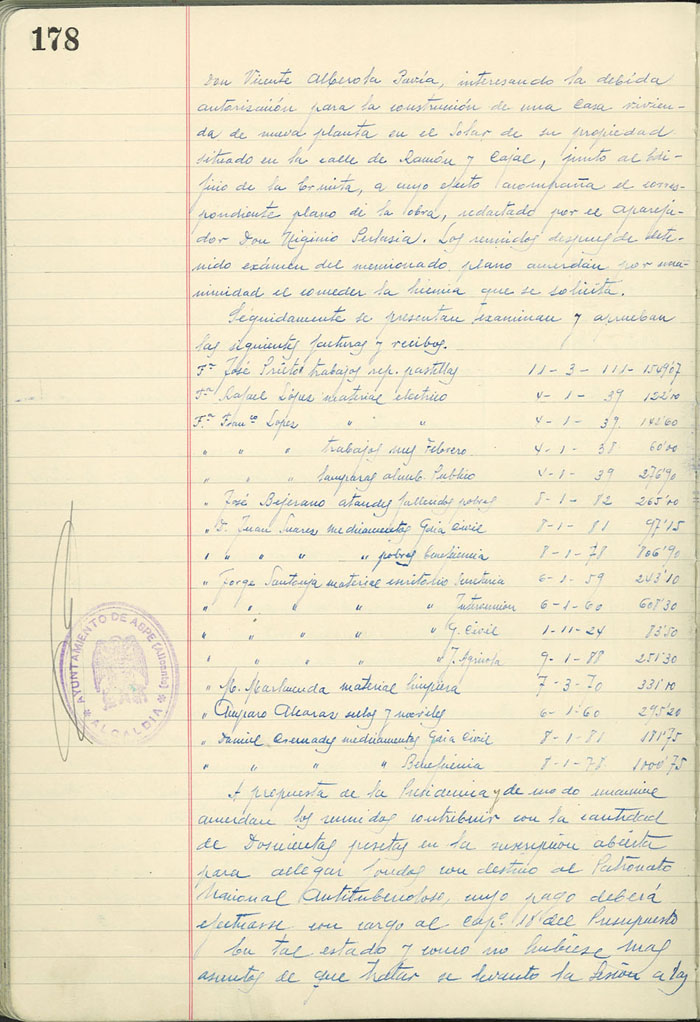 178
Don Vicente Alberola Pavía, interesando la debida
autorisación para la construción de una Casa vivien-
da de nueva planta en el Solar de su propiedad
situado en la calle de Ramón y Cajal, junto al Edi-
ficio de la Ermita, a cuyo efecto acompaña el corres-
pondiente plano de la obra, redactado por el Apareja-
dor Don Higinio Perlasia. Los reunidos despues de dete-
nido exámen del mencionado plano acuerdan por una-
nimidad el conceder la licencia que se solicita.
Seguidamente se presentan examinan y aprueban
las siguientes facturas y recibos.
Fra José Prieto trabajos rep. pastillas 11 - 3 - 111 - 1549'07
Fra Rafael López material electrico 4 - 1 - 39 122'00
Fra Franco Lopez " " 4 - 1 - 39. 142'60
" " " trabajos mes Febrero 4 - 1 - 38 60'00
" " " lamparas alumb. Publico 4 - 1 - 39 276'90
" José Bejerano ataudes fallecidos pobres 8 - 1 - 82 265'00
" D. Juan Suarez medicamentos Gdia Civil 8 - 1 - 81 97'15
" " " " " pobres beneficencia 8 - 1 - 78 866'90
" Jorge Santonja material escritorio Secretaria 6 - 1 - 59 243'10
" " " " " Intervención 6 - 1 - 60 608'30
" " " " " G. Civil 1 - 11 - 24 83'50
" " " " " J. Agricola 9 - 1 - 88 251'30
" M. Marhuenda material limpieza 7 - 3 - 70 331'10
" Amparo Alcaraz sellos y moviles 6 - 1 - 60 295'20
" Daniel Cremades medicamentos Gdia Civil 8 - 1 - 81 181'75
" " " " Beneficencia 8 - 1 - 78 1000'75
A propuesta de la Presidencia y de modo unanime
acuerdan los reunidos contribuir con la cantidad
de Doscientas pesetas en la suscripción abierta
para allegar fondos con destino al Patronato
Nacional Antituberculoso, cuyo pago deberá
efectuarse con cargo al Capº. 18 del Presupuesto
En tal estado y como no hubiese mas
asuntos de que tratar se levanto la Sesión a las
AYUNTAMIENTO DE ASPE (Alicante)
* ALCALDIA *